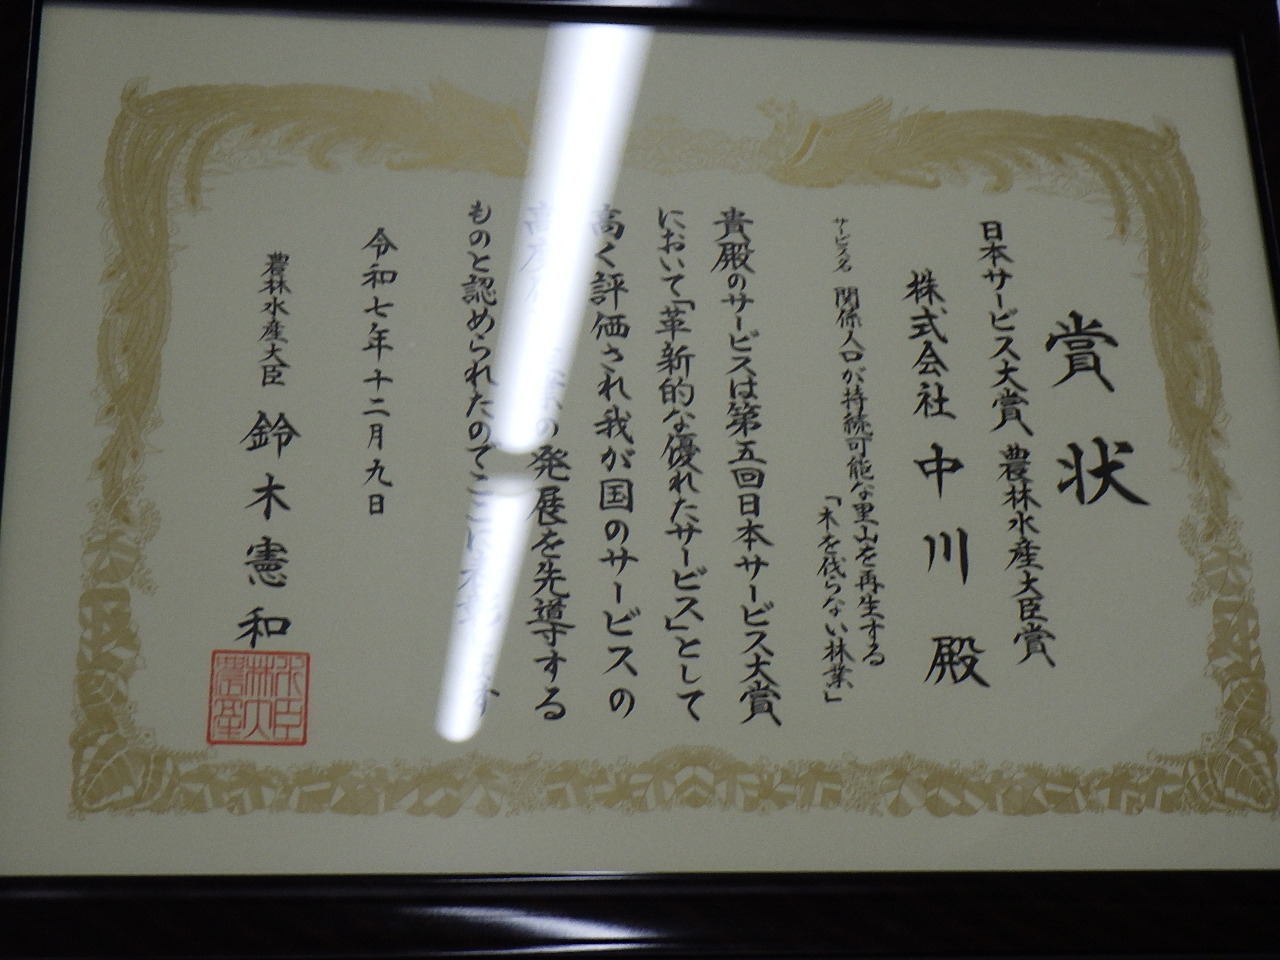 賞状
日本サービス大賞 農林水産大臣賞
株式会社 中川 殿
サービス名 関係人口が持続可能な里山を再生する
「木を伐らない林業」
貴殿のサービスは第五回日本サービス大賞
において「革新的な優れたサービス」として
高く評価され我が国のサービスの
の発展を先導する
ものと認められたのでここに
令和七年十二月九日
農林水産大臣 鈴木憲和
農林水産大臣